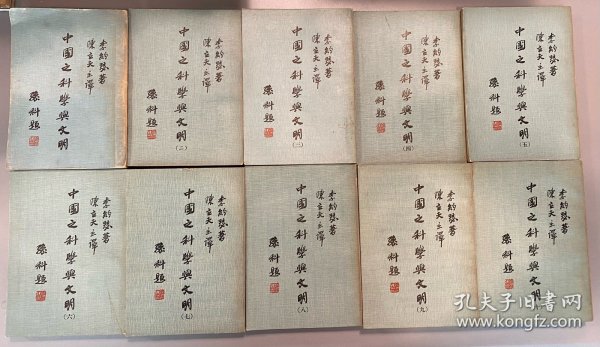 李約瑟著
陳立夫主譯
中國之科學與文明
孫科題
李約瑟著
陳立夫主譯
中國之科學與文明
(二)
孫科題
李約瑟著
陳立夫主譯
中國之科學與文明
(三)
孫科題
李約瑟著
陳立夫主譯
中國之科學與文明
(四)
孫科題
李約瑟著
陳立夫主譯
中國之科學與文明
(五)
孫科題
李約瑟著
陳立夫主譯
中國之科學與文明
(六)
孫科題
李約瑟著
陳立夫主譯
中國之科學與文明
(七)
孫科題
李約瑟著
陳立夫主譯
中國之科學與文明
(八)
孫科題
李約瑟著
陳立夫主譯
中國之科學與文明
(九)
孫科題
李約瑟著
陳立夫主譯
中國之科學與文明
孫科題
孔夫子旧书网
www.kongfz.com